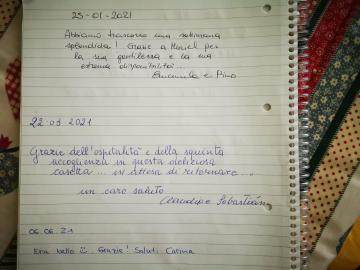 25-01-2021
Abbiamo trascorso una settimana
splendida! Grazie a Muriel per
la sua gentilezza e la sua
estrema disponibilità...
e Pino
22.03.2021
Grazie dell'ospitalità e della squisita
accoglienza in questa deliziosa
casetta... in attesa di ritornare...
un caro saluto
Sebastián
06.06.21
Era bello Grazie! Saluti Carina